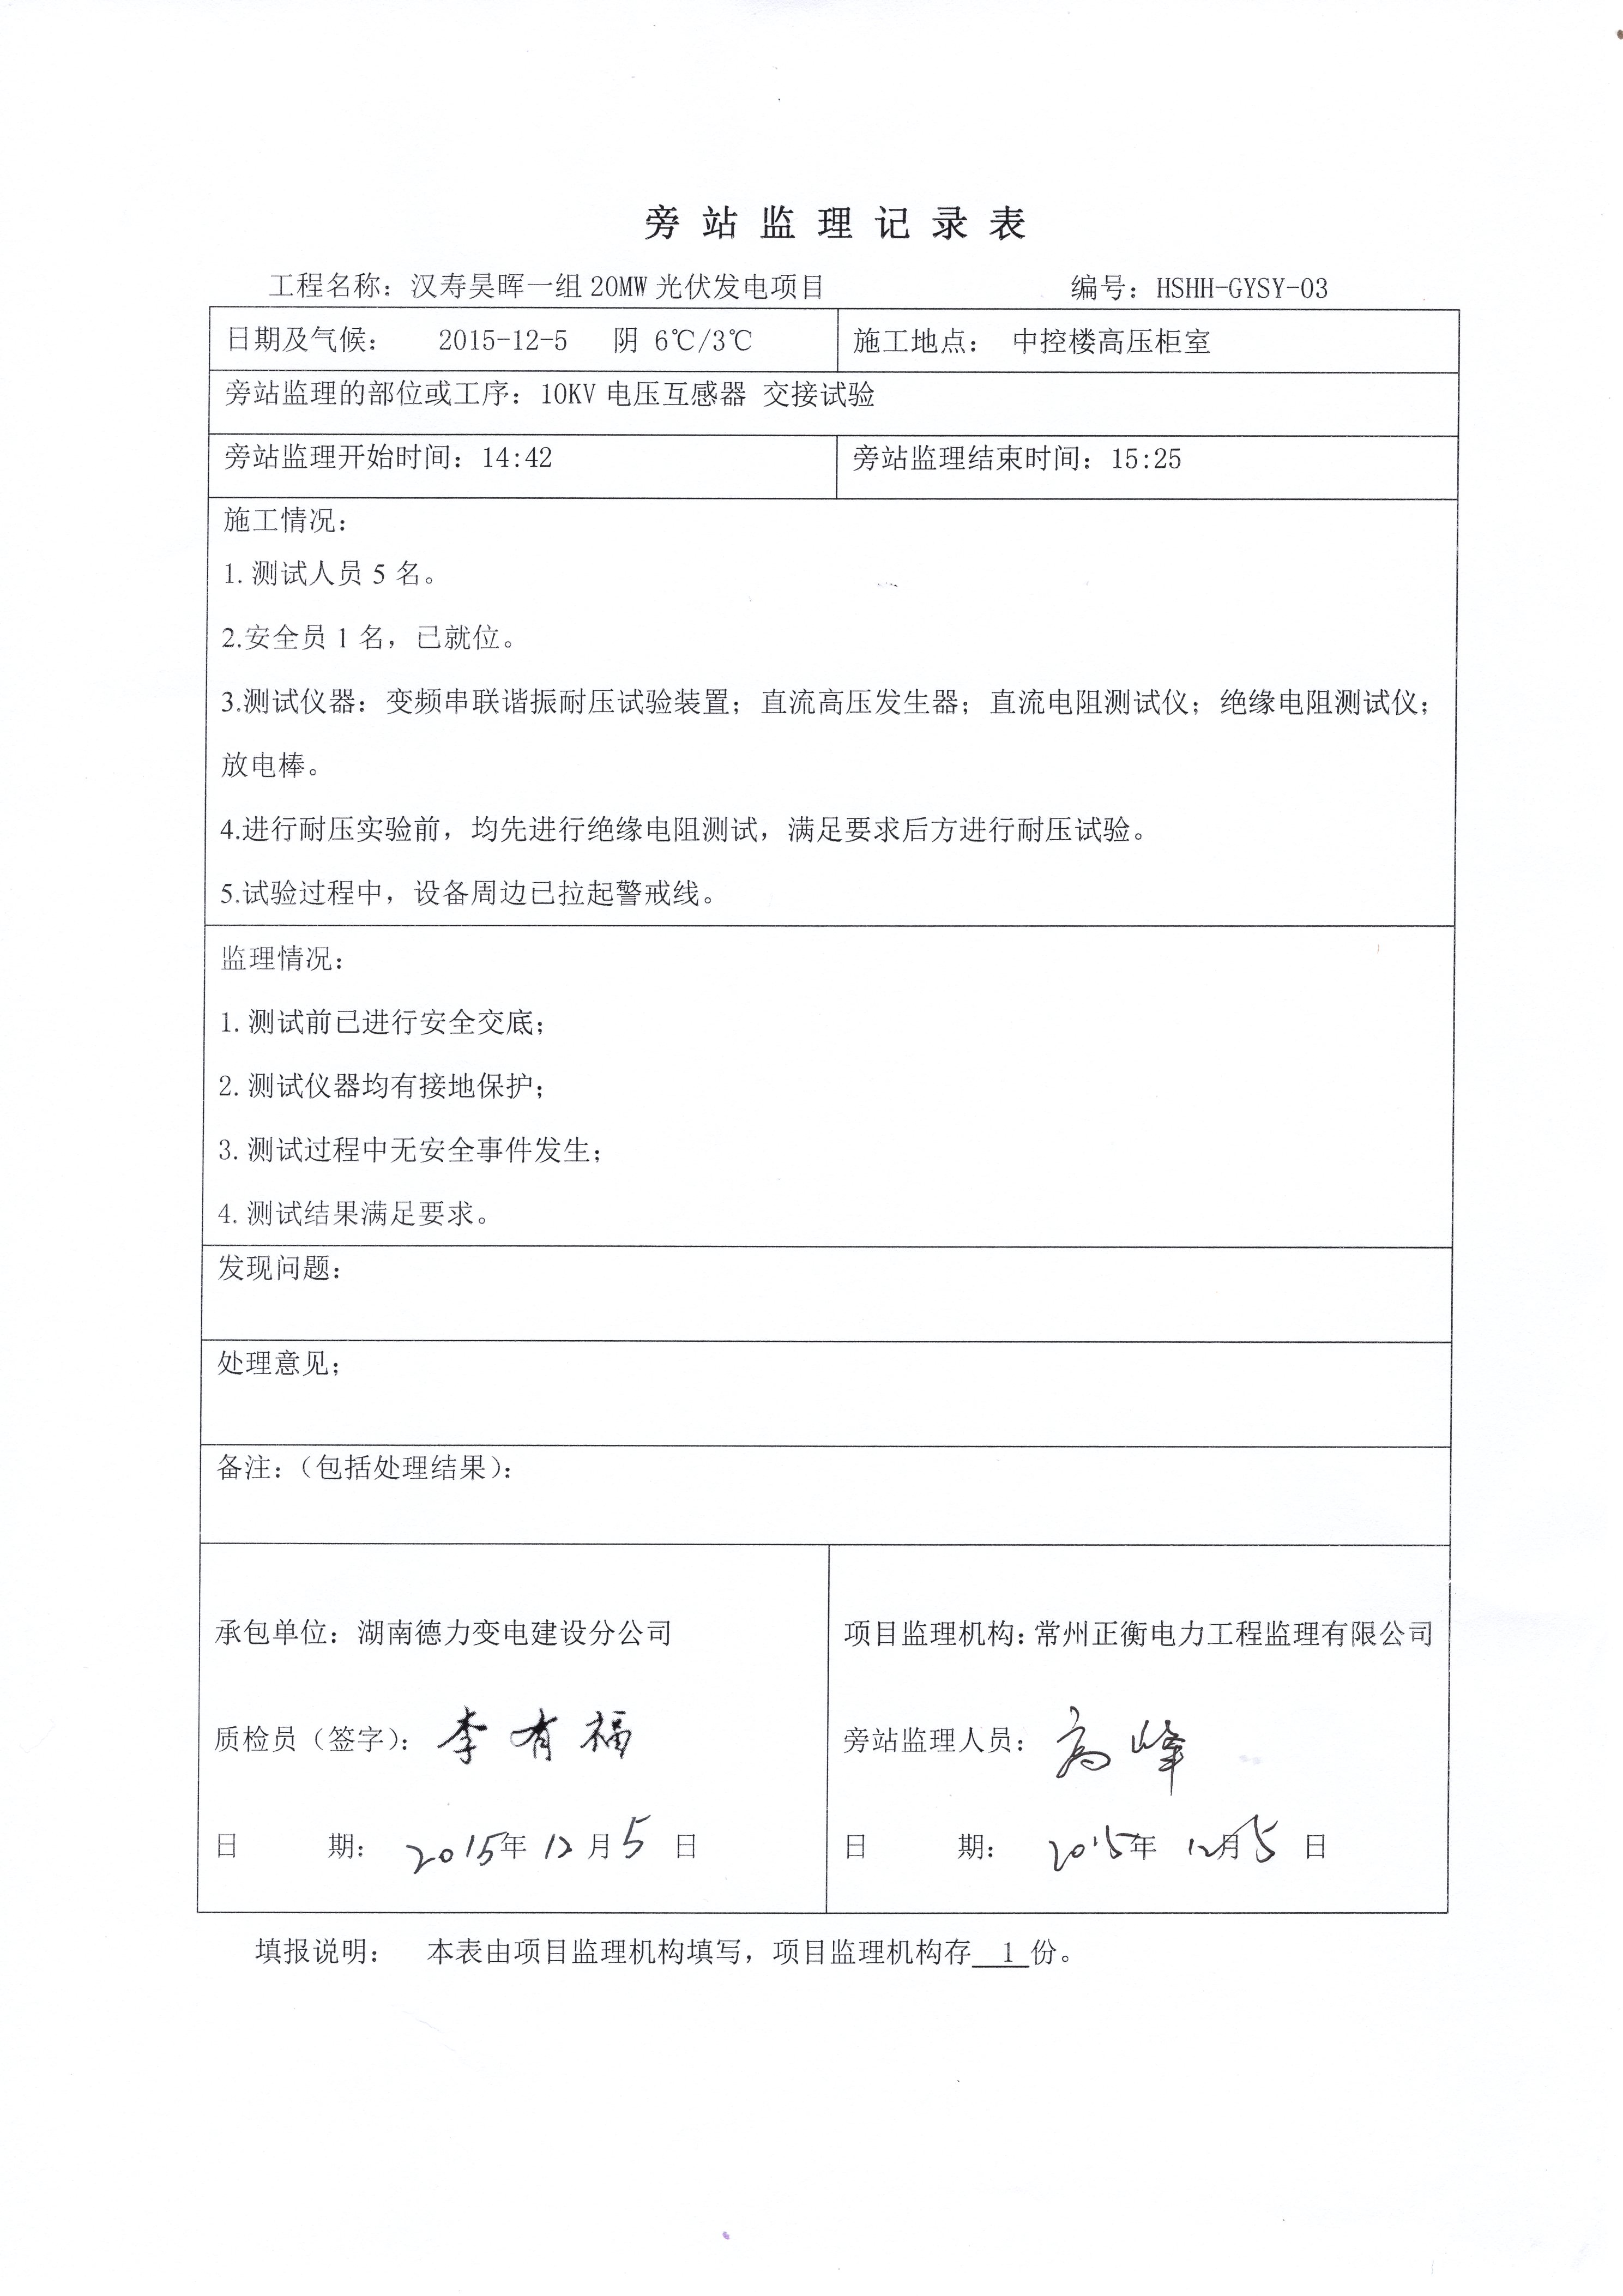 旁站监理记录表
工程名称：汉寿昊晖一组 20MW 光伏发电项目 编号：HSHH-GYSY-03
日期及气候： 2015-12-5 阴 6℃/3℃ 施工地点： 中控楼高压柜室
旁站监理的部位或工序：10KV 电压互感器 交接试验
旁站监理开始时间：14:42 旁站监理结束时间：15:25
施工情况：
1. 测试人员 5 名。
2.安全员 1 名，已就位。
3.测试仪器：变频串联谐振耐压试验装置；直流高压发生器；直流电阻测试仪；绝缘电阻测试仪；
放电棒。
4.进行耐压实验前，均先进行绝缘电阻测试，满足要求后方进行耐压试验。
5.试验过程中，设备周边已拉起警戒线。
监理情况：
1. 测试前已进行安全交底；
2. 测试仪器均有接地保护；
3. 测试过程中无安全事件发生；
4. 测试结果满足要求。
发现问题：
处理意见；
备注：（包括处理结果）：
承包单位：湖南德力变电建设分公司 项目监理机构：常州正衡电力工程监理有限公司
质检员（签字）： 李有福 旁站监理人员： 高峰
日 期： 2015年 12月 5 日 日 期： 2015年 12月 5 日
填报说明： 本表由项目监理机构填写，项目监理机构存 1 份。